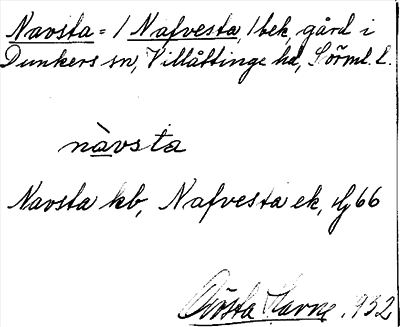 Navsta = / Nafvesta, / bek, gård i
Dunkers sn, Villåttinge hd, Sörml. l.
nàvsta
Navsta kb, Nafvesta ek, 66
Gösta 1932